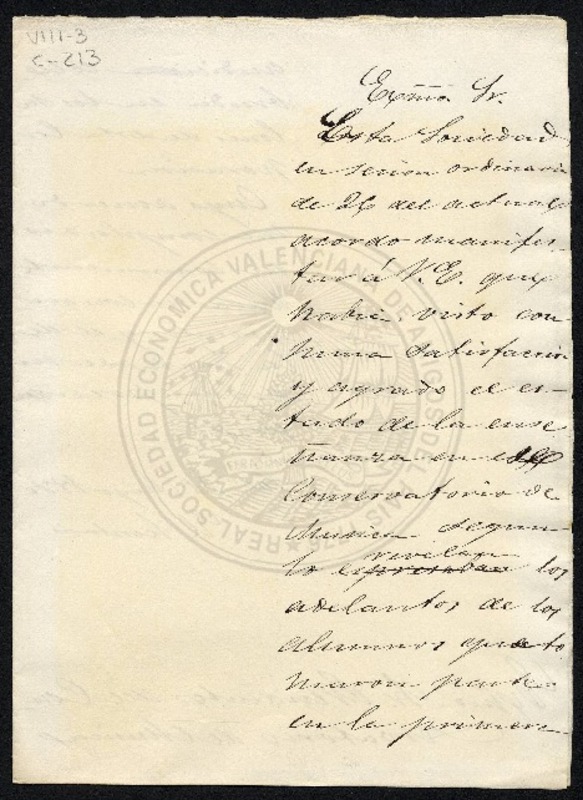 VIII-3
C-213
Exmo Sr.
Esta Sociedad
en sesion ordinaria
de 26 del actual
acordo manifes-
tar á V. E. que
habia visto con
suma satisfaccion
y agrado el es-
tado de la ense
ñanza en ese
Conservatorio de
Musica segun
revelan
lo los
adelantos de los
alumnos que to
maron parte
en la primera
REAL SOCIEDAD ECONOMICA VALENCIANA DE AMIGOS DEL PAIS 1776